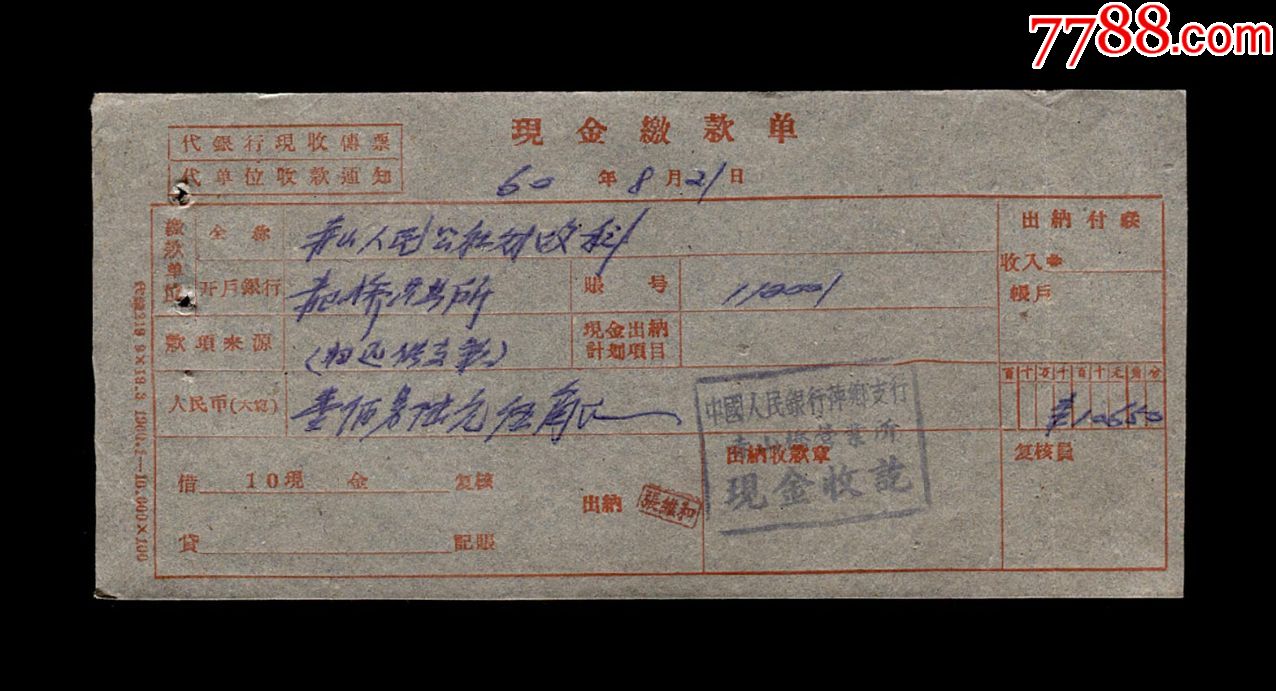 7788.com
現金繳款单
代銀行現收傳票
代单位收款通知
60年8月21日
繳款单位
全称
人民公社财政科
出納付联
收入
开戶銀行
赤桥营业所
賬号
110001
帳戶
款項来源
(归还借支款)
現金出納
計划項目
人民币(大寫)
壹佰另陆元伍角正
百十万千百十元角分
¥10650
中國人民銀行萍鄉支行
赤山橋營業所
現金收訖
出納收款章
复核員
借 10現 金 复核
出納
張維和
貸 記賬